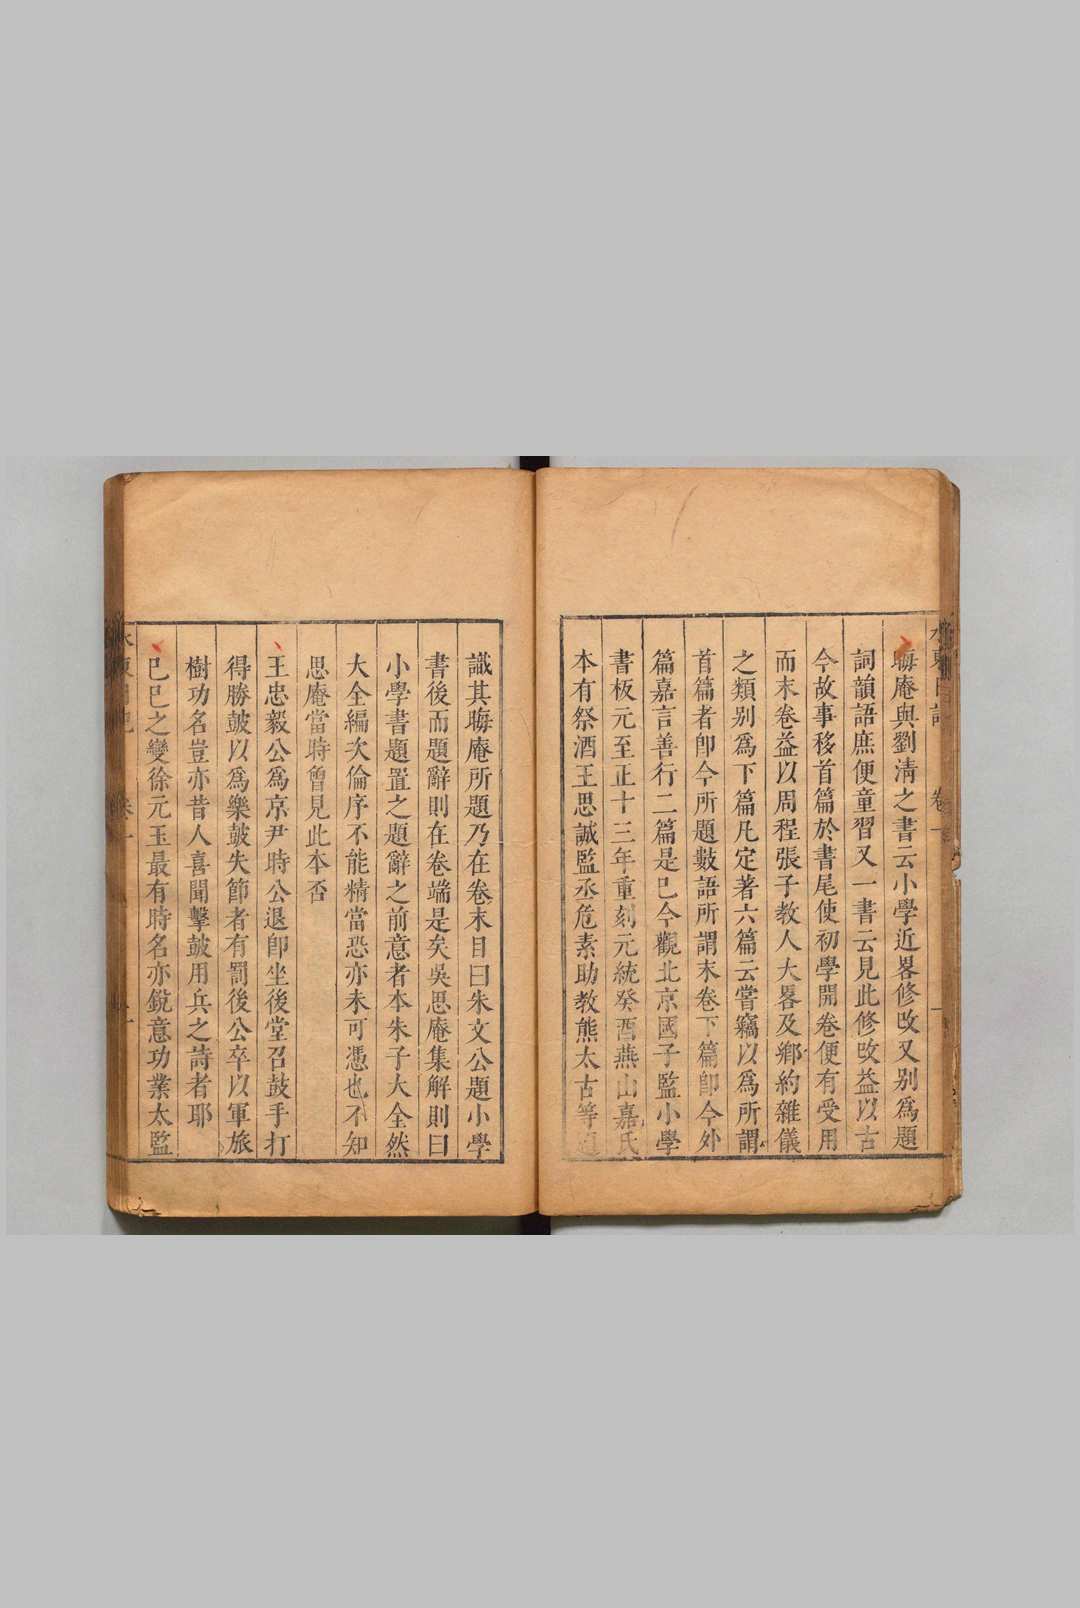 晦庵與劉淸之書云小學近畧修改又别爲題
詞韻語庶便童習又一書云見此修改益以古
今故事移首篇於書尾使初學開卷便有受用
而末卷益以周程張子教人大畧及鄉約雜儀
之類别爲下篇凡定著六篇云嘗竊以爲所謂
首篇者卽今所題數語所謂末卷下篇卽今外
篇嘉言善行二篇是已今觀北京國子監小學
書板元至正十三年重刻元統癸酉燕山嘉氏
本有祭酒王思誠監丞危素助教熊太古等題
識其晦庵所題乃在卷末目曰朱文公題小學
書後而題辭則在卷端是矣吳思庵集解則曰
小學書題置之題辭之前意者本朱子大全然
大全編次倫序不能精當恐亦未可憑也不知
思庵當時曾見此本否
王忠毅公爲京尹時公退卽坐後堂召鼓手打
得勝鼓以爲樂鼓失節者有罰後公卒以軍旅
樹功名豈亦昔人喜聞擊鼓用兵之詩者耶
已巳之變徐元玉最有時名亦銳意功業太監